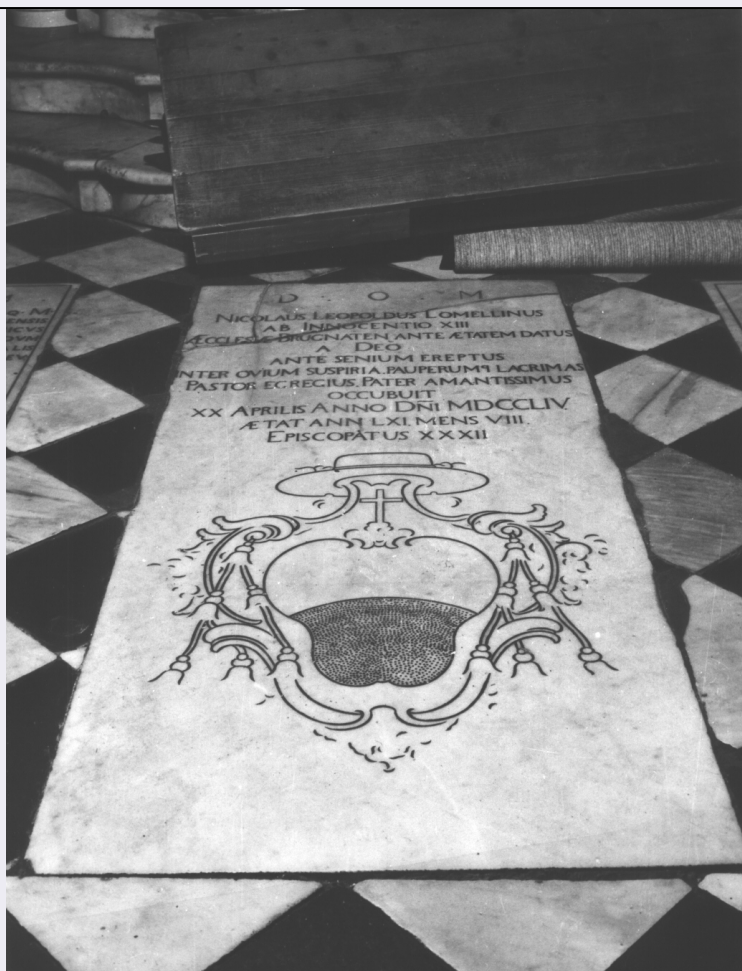 D. O. M
NICOLAUS LEOPOLDUS LOMELLINUS
AB INNOCENTIO XIII
ÆCCLESIÆ BRUGNATEN ANTE ÆTATEM DATUS
A DEO
ANTE SENIUM EREPTUS
INTER OVIUM SUSPIRIA, PAUPERUMQ LACRIMAS
PASTOR EGREGIUS, PATER AMANTISSIMUS
OCCUBUIT
XX APRILIS ANNO DÑI MDCCLIV.
ÆTAT ANN LXI. MENS VIII.
EPISCOPATUS XXXII